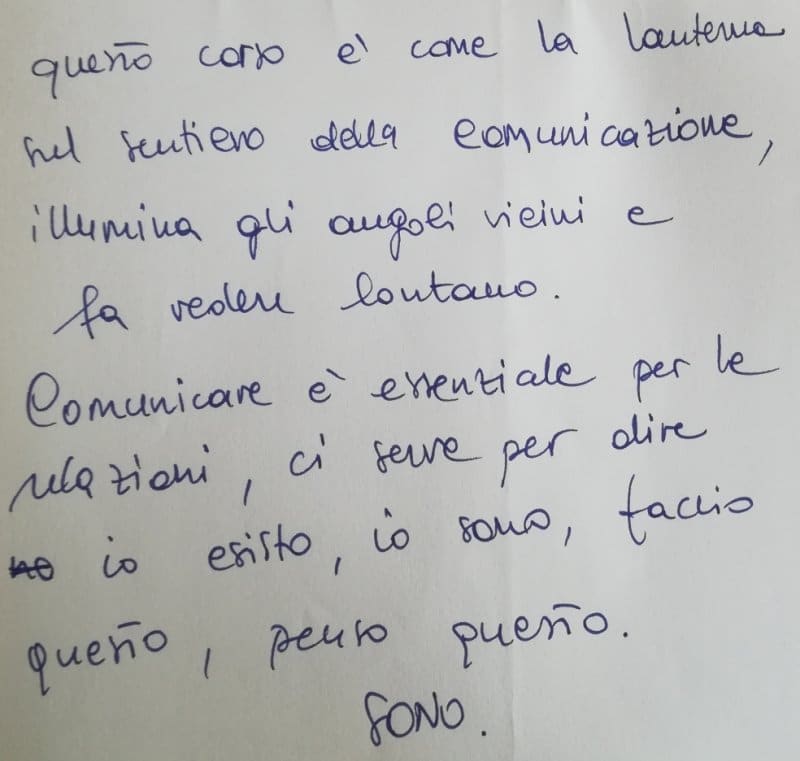 questo corso e' come la lanterna
nel sentiero della comunicazione,
illumina gli angoli vicini e
fa vedere lontano.
Comunicare e' essenziale per le
relazioni, ci serve per dire
no io esisto, io sono, faccio
questo, penso questo.
SONO.